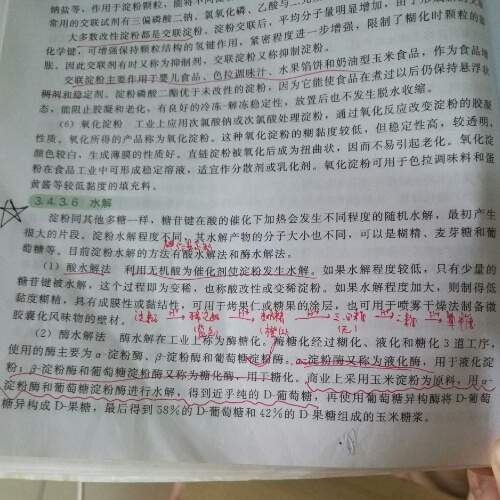 钠盐等，作用于淀粉颗粒，能将不同
常用的交联试剂有三偏磷酸二钠、氯氧化磷、乙酸与二元
大多数改性淀粉都是交联淀粉。淀粉交联后，平均分子量明显增加，由于形成新的
化学键，可增强保持颗粒结构的氢键作用，紧密程度进一步增强，限制了糊化时颗粒的
胀，因此交联剂有时又称为抑制剂，交联淀粉又称抑制淀粉。
交联淀粉主要作用于婴儿食品、色拉调味汁、水果馅饼和奶油型玉米食品，作为食品增
稠剂和稳定剂。淀粉磷酸二酯优于未改性的淀粉，因为它能使食品在煮过以后仍保持悬浮状
态，能阻止胶凝和老化，有良好的冷冻-解冻稳定性，放置后也不发生脱水收缩。
（6）氧化淀粉 工业上应用次氯酸钠或次氯酸处理淀粉，通过氧化反应改变淀粉的胶凝
性质。氧化所得的产品称为氧化淀粉。这种氧化淀粉的糊黏度较低，但稳定性高，较透明，
颜色较白，生成薄膜的性质好。直链淀粉被氧化后成为扭曲状，因而不易引起老化。氧化淀
粉在食品工业中可形成稳定溶液，适宜作分散剂或乳化剂。氧化淀粉可用于色拉调味料和蛋
黄酱等较低黏度的填充料。
3.4.3.6 水解
淀粉同其他多糖一样，糖苷键在酸的催化下加热会发生不同程度的随机水解，最初产生
很大的片段。淀粉水解程度不同，其水解产物的分子大小也不同，可以是糊精、麦芽糖和葡
萄糖等。目前淀粉水解的方法有酸水解法和酶水解法。
（1）酸水解法 利用无机酸为催化剂使淀粉发生水解。如果水解程度较低，只有少量的
糖苷键被水解，这个过程即为变稀，也称酸改性或变稀淀粉。如果水解程度加大，则制得低
黏度糊精，具有成膜性或黏结性，可用于烤果仁或糖果的涂层，也可用于喷雾干燥法制备微
胶囊化风味物的壁材。
（2）酶水解法 酶水解在工业上称为酶糖化。酶糖化经过糊化、液化和糖化 3 道工序，
使用的酶主要为 α-淀粉酶、β-淀粉酶和葡萄糖淀粉酶。α-淀粉酶又称为液化酶，用于液化淀
粉，β-淀粉酶和葡萄糖淀粉酶又称为糖化酶，用于糖化。商业上采用玉米淀粉为原料，用α-
淀粉酶和葡萄糖淀粉酶进行水解，得到近乎纯的 D-葡萄糖，再使用葡萄糖异构酶将 D-葡萄
糖异构成 D-果糖，最后得到 58%的 D-葡萄糖和 42%的 D 果糖组成的玉米糖浆。